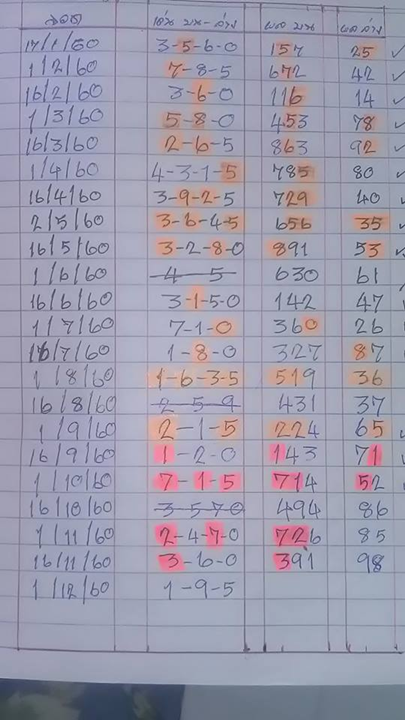 งวด เด่น บน-ล่าง ผล บน ผล ล่าง
17/1/60 3-5-6-0 157 25
1/2/60 7-8-5 672 42
16/2/60 3-6-0 116 14
1/3/60 5-8-0 453 78
16/3/60 2-6-5 863 92
1/4/60 4-3-1-5 785 80
16/4/60 3-9-2-5 729 40
2/5/60 3-6-4-5 656 35
16/5/60 3-2-8-0 891 53
1/6/60 4 5 630 61
16/6/60 3-1-5-0 142 47
1/7/60 7-1-0 360 26
16/7/60 1-8-0 327 87
1/8/60 1-6-3-5 519 36
16/8/60 2 5 9 431 37
1/9/60 2-1-5 224 65
16/9/60 1-2-0 143 71
1/10/60 7-1-5 714 52
16/10/60 3-5-7-0 494 86
1/11/60 2-4-7-0 726 85
16/11/60 3-6-0 391 98
1/12/60 1-9-5